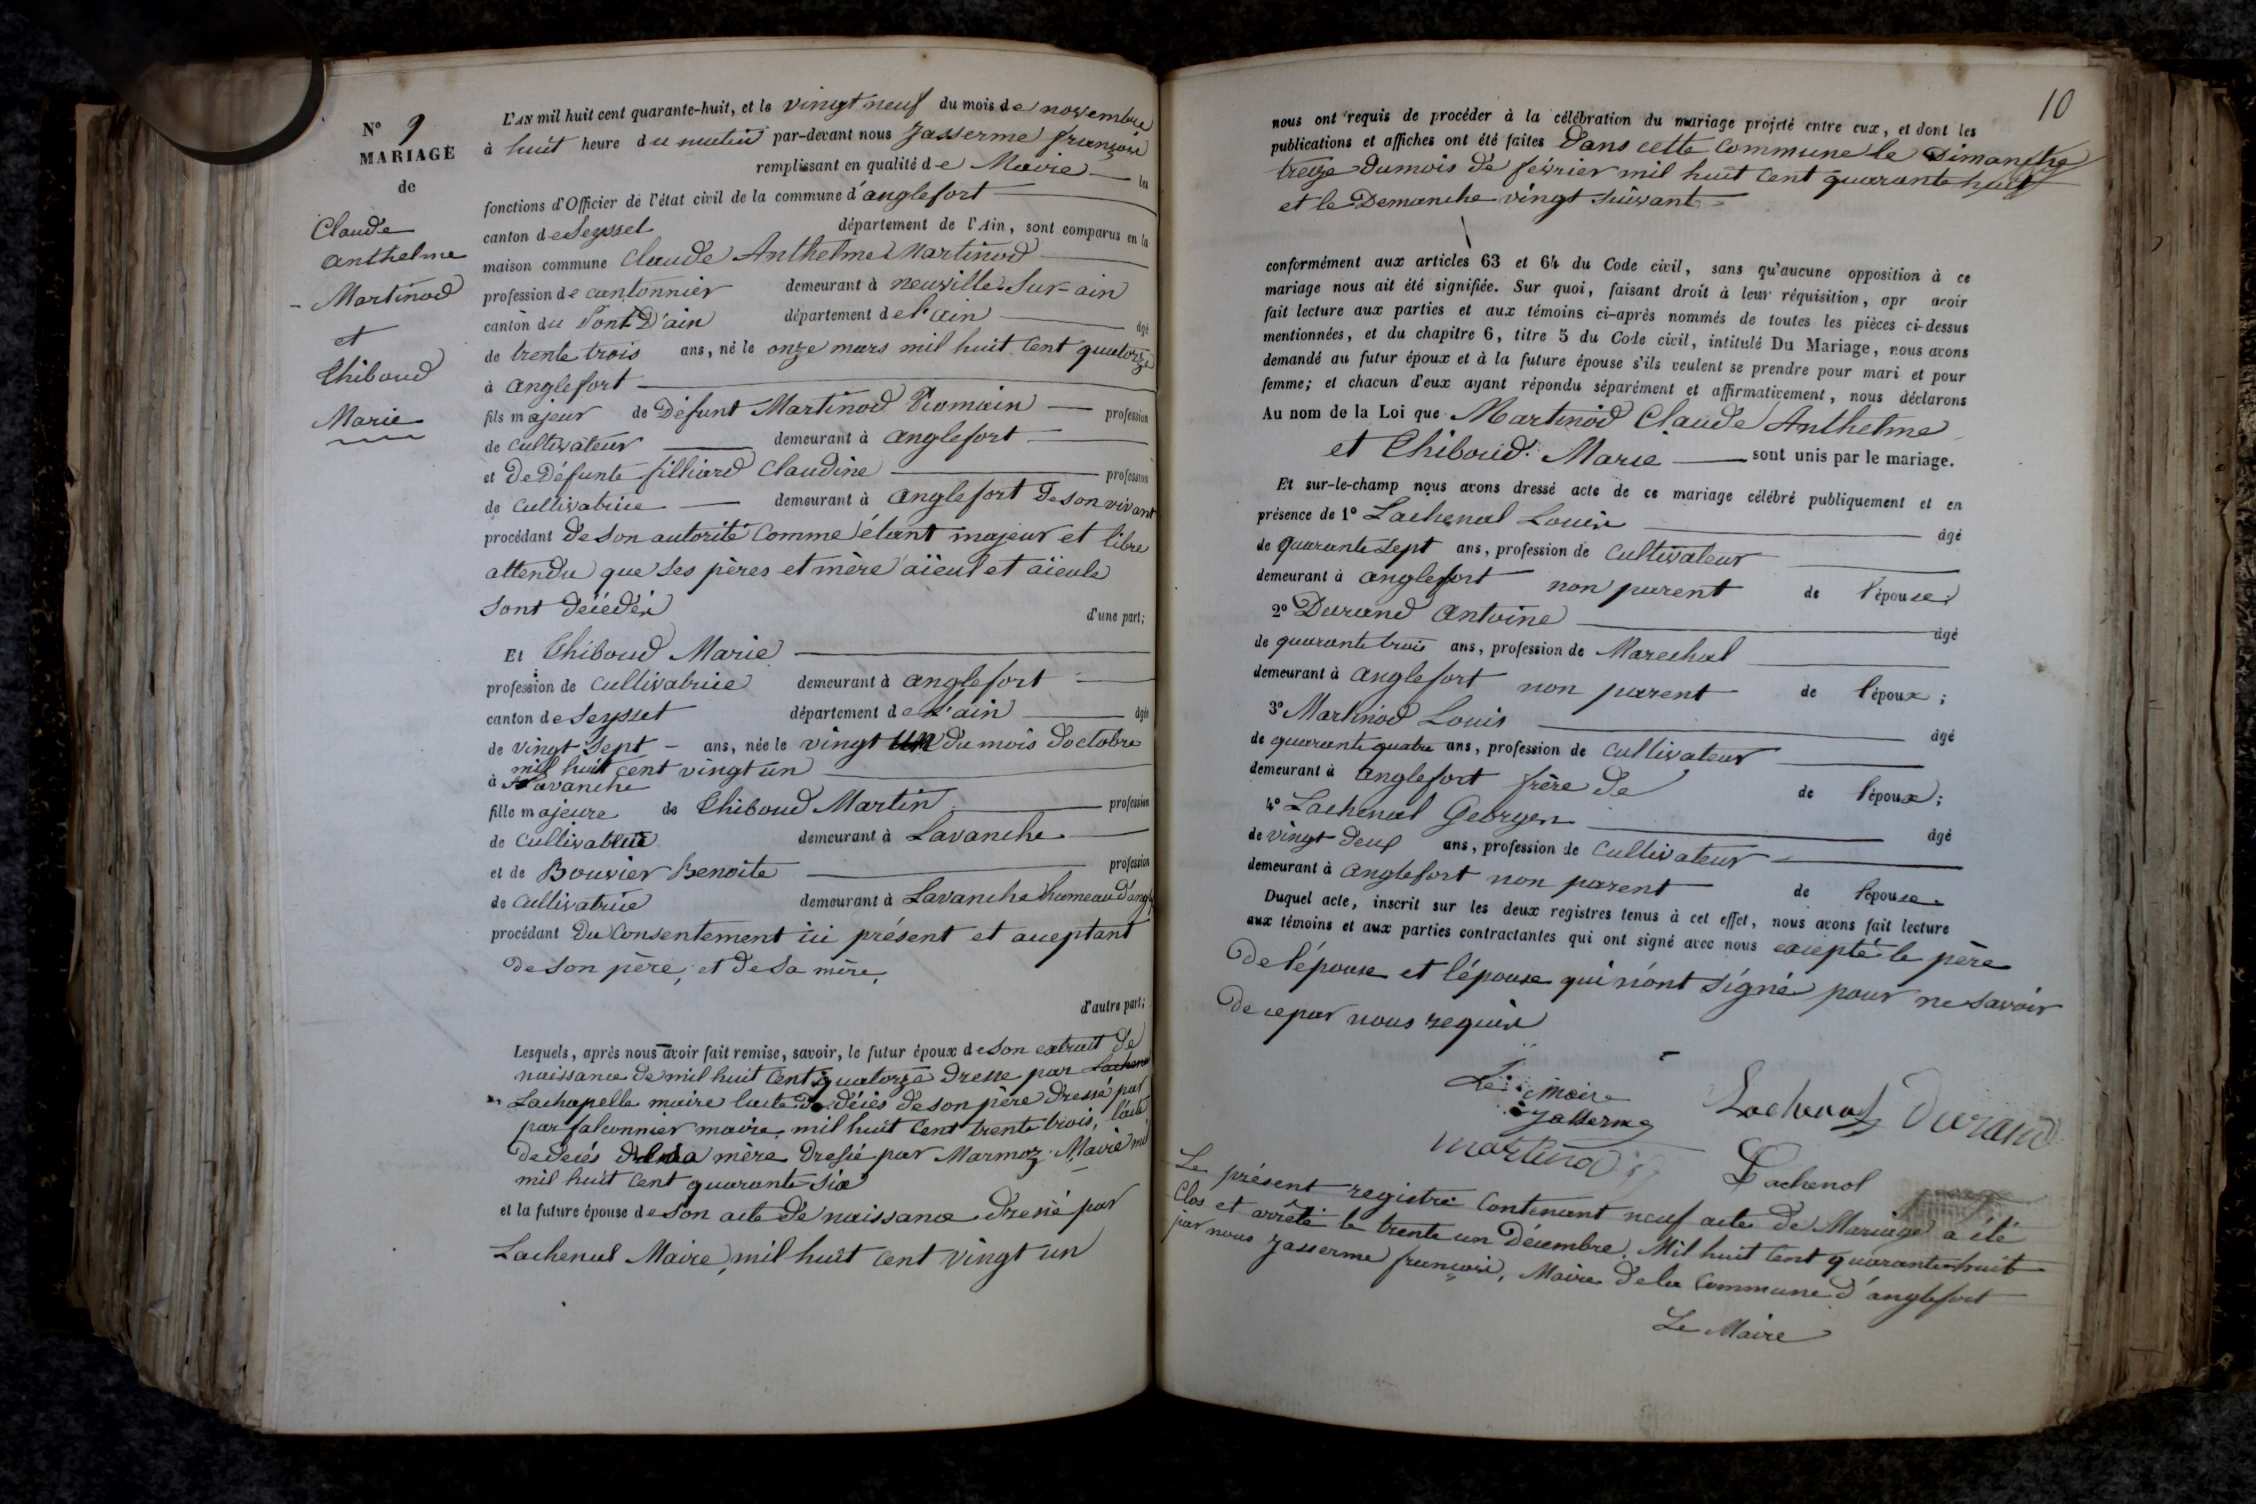 N° 9
MARIAGE
de
Claude
anthelme
Martinod
et
Thiboud
Marie
L'AN mil huit cent quarante-huit, et le vingt neuf du mois de novembre
à huit heure du matin par-devant nous Jasserme françois
remplissant en qualité de Maire les
fonctions d'Officier de l'état civil de la commune d'anglefort
canton de Seyssel département de l'Ain, sont comparus en la
maison commune Claude Anthelme Martinod
profession de cantonnier demeurant à neuville Sur-ain
canton du Pont D'ain département de l'ain âgé
de trente trois ans, né le onze mars mil huit cent quatorze
à anglefort
fils majeur de Défunt Martinod Romain profession
de cultivateur demeurant à anglefort
et de Défunte filliard Claudine profession
de cultivatrice demeurant à anglefort de son vivant
procédant de son autorité comme étant majeur et libre
attendu que ses pères et mère aïeul et aïeule
sont décédés
d'une part;
Et Thiboud Marie
profession de cultivatrice demeurant à anglefort
canton de Seyssel département de l'ain âgée
de vingt sept ans, née le vingt un du mois d'octobre
mil huit cent vingt un
à Lavanche
fille majeure de Thiboud Martin profession
de cultivateur demeurant à Lavanche
et de Bouvier Benoite profession
de cultivatrice demeurant à Lavanche hameau d'ang
procédant du consentement ici présent et acceptant
de son père, et de sa mère,
d'autre part;
Lesquels, après nous avoir fait remise, savoir, le futur époux de son extrait de
naissance de mil huit cent quatorze dressé par
Lachapelle maire l'acte de décès de son père dressé par
par falconnier maire, mil huit cent trente trois, l'acte
de décés de sa mère dressé par Marmoz Maire mil
mil huit cent quarante six
et la future épouse de son acte de naissance dressé par
Lachenal Maire, mil huit cent vingt un
10
nous ont requis de procéder à la célébration du mariage projeté entre eux, et dont les
publications et affiches ont été faites dans cette commune le Dimanche
treize du mois de février mil huit cent quarante huit
et le Demanche vingt suivant
conformément aux articles 63 et 64 du Code civil, sans qu'aucune opposition à ce
mariage nous ait été signifiée. Sur quoi, faisant droit à leur réquisition, apr avoir
fait lecture aux parties et aux témoins ci-après nommés de toutes les pièces ci-dessus
mentionnées, et du chapitre 6, titre 5 du Code civil, intitulé Du Mariage, nous avons
demandé au futur époux et à la future épouse s'ils veulent se prendre pour mari et pour
femme; et chacun d'eux ayant répondu séparément et affirmativement, nous déclarons
Au nom de la Loi que Martinod Claude Anthelme
et Thiboud Marie sont unis par le mariage.
Et sur-le-champ nous avons dressé acte de ce mariage célébré publiquement et en
présence de 1° Lachenal Louis âgé
de quarante sept ans, profession de cultivateur
demeurant à anglefort non parent de l'épouse;
2° Durand Antoine âgé
de quarante trois ans, profession de Marechal
demeurant à anglefort non parent de l'époux;
3° Martinod Louis âgé
de quarante quatre ans, profession de cultivateur
demeurant à anglefort frère de de l'époux;
4° Lachenal Georges âgé
de vingt deux ans, profession de cultivateur
demeurant à anglefort non parent de l'épouse.
Duquel acte, inscrit sur les deux registres tenus à cet effet, nous avons fait lecture
aux témoins et aux parties contractantes qui ont signé avec nous excepté le père
de l'épouse et l'épouse qui n'ont signé pour ne savoir
de ce par nous requis
Le maire
Jasserme
Lachenal Durand
Martinod
Lachenal
Le présent registre contenant neuf acte de Mariage a été
Clos et arrêté le trente un Décembre, Mil huit cent quarante huit
par nous Jasserme françois, Maire de la commune d'anglefort
Le Maire